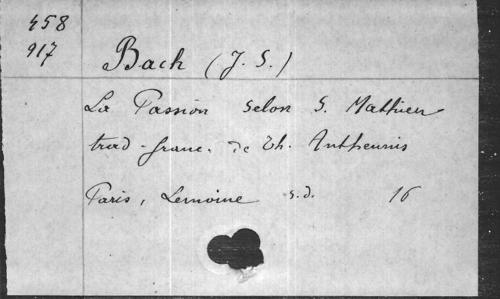 458
917
Bach (J. S.)
La Passion selon S. Mathieu
trad. franc. de Th. Antheunis
Paris, Lemoine s.d. 16